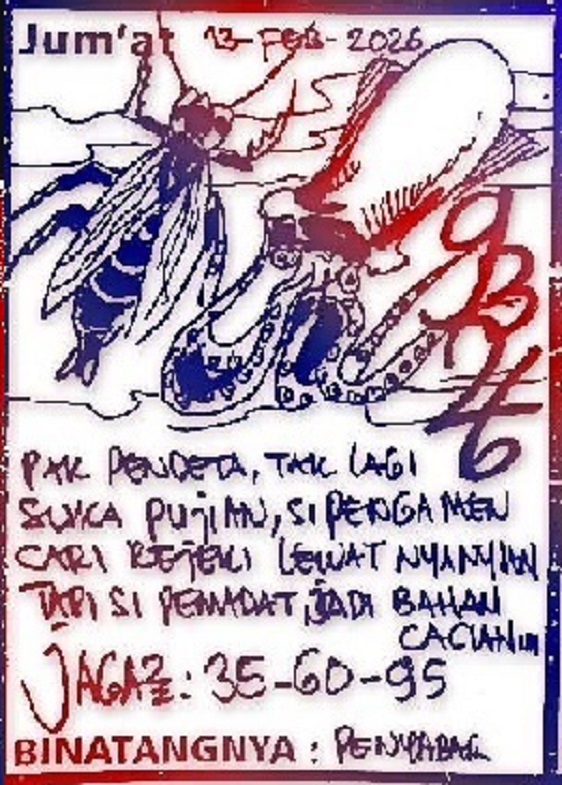 Jum'at 13-FEB-2026
PAK PENDETA, TAK LAGI
SUKA PUJIAN, SI PENGAMEN
CARI REJEKI LEWAT NYANYIAN
TAPI SI PEMADAT, JADI BAHAN
CACIAN
JAGA2: 35-60-95
BINATANGNYA :